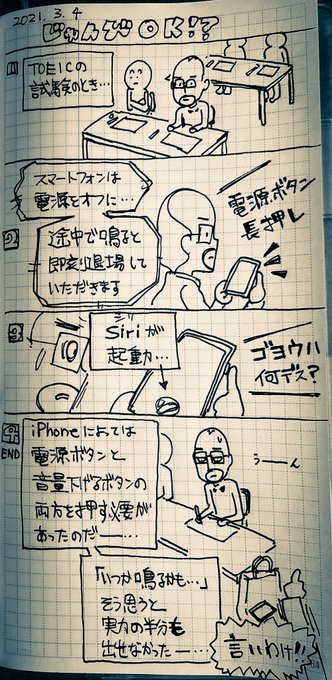 2021. 3. 4
じゃんびOK!?
1
TOEICの
試験のとき…
スマートフォンは
電源をオフに…
電源ボタン
長押し
2
途中で鳴ると
即刻退場して
いただきます
3
シリ
Siriが
起動…
ゴヨウハ
何デス?
4
END
iPhoneによっては
電源ボタンと
音量下げるボタンの
両方を押す必要が
あったのだー…
うーん
「いつか鳴るかも…」
そう思うと
実力の半分も
出せなかったー…
言いわけ!!